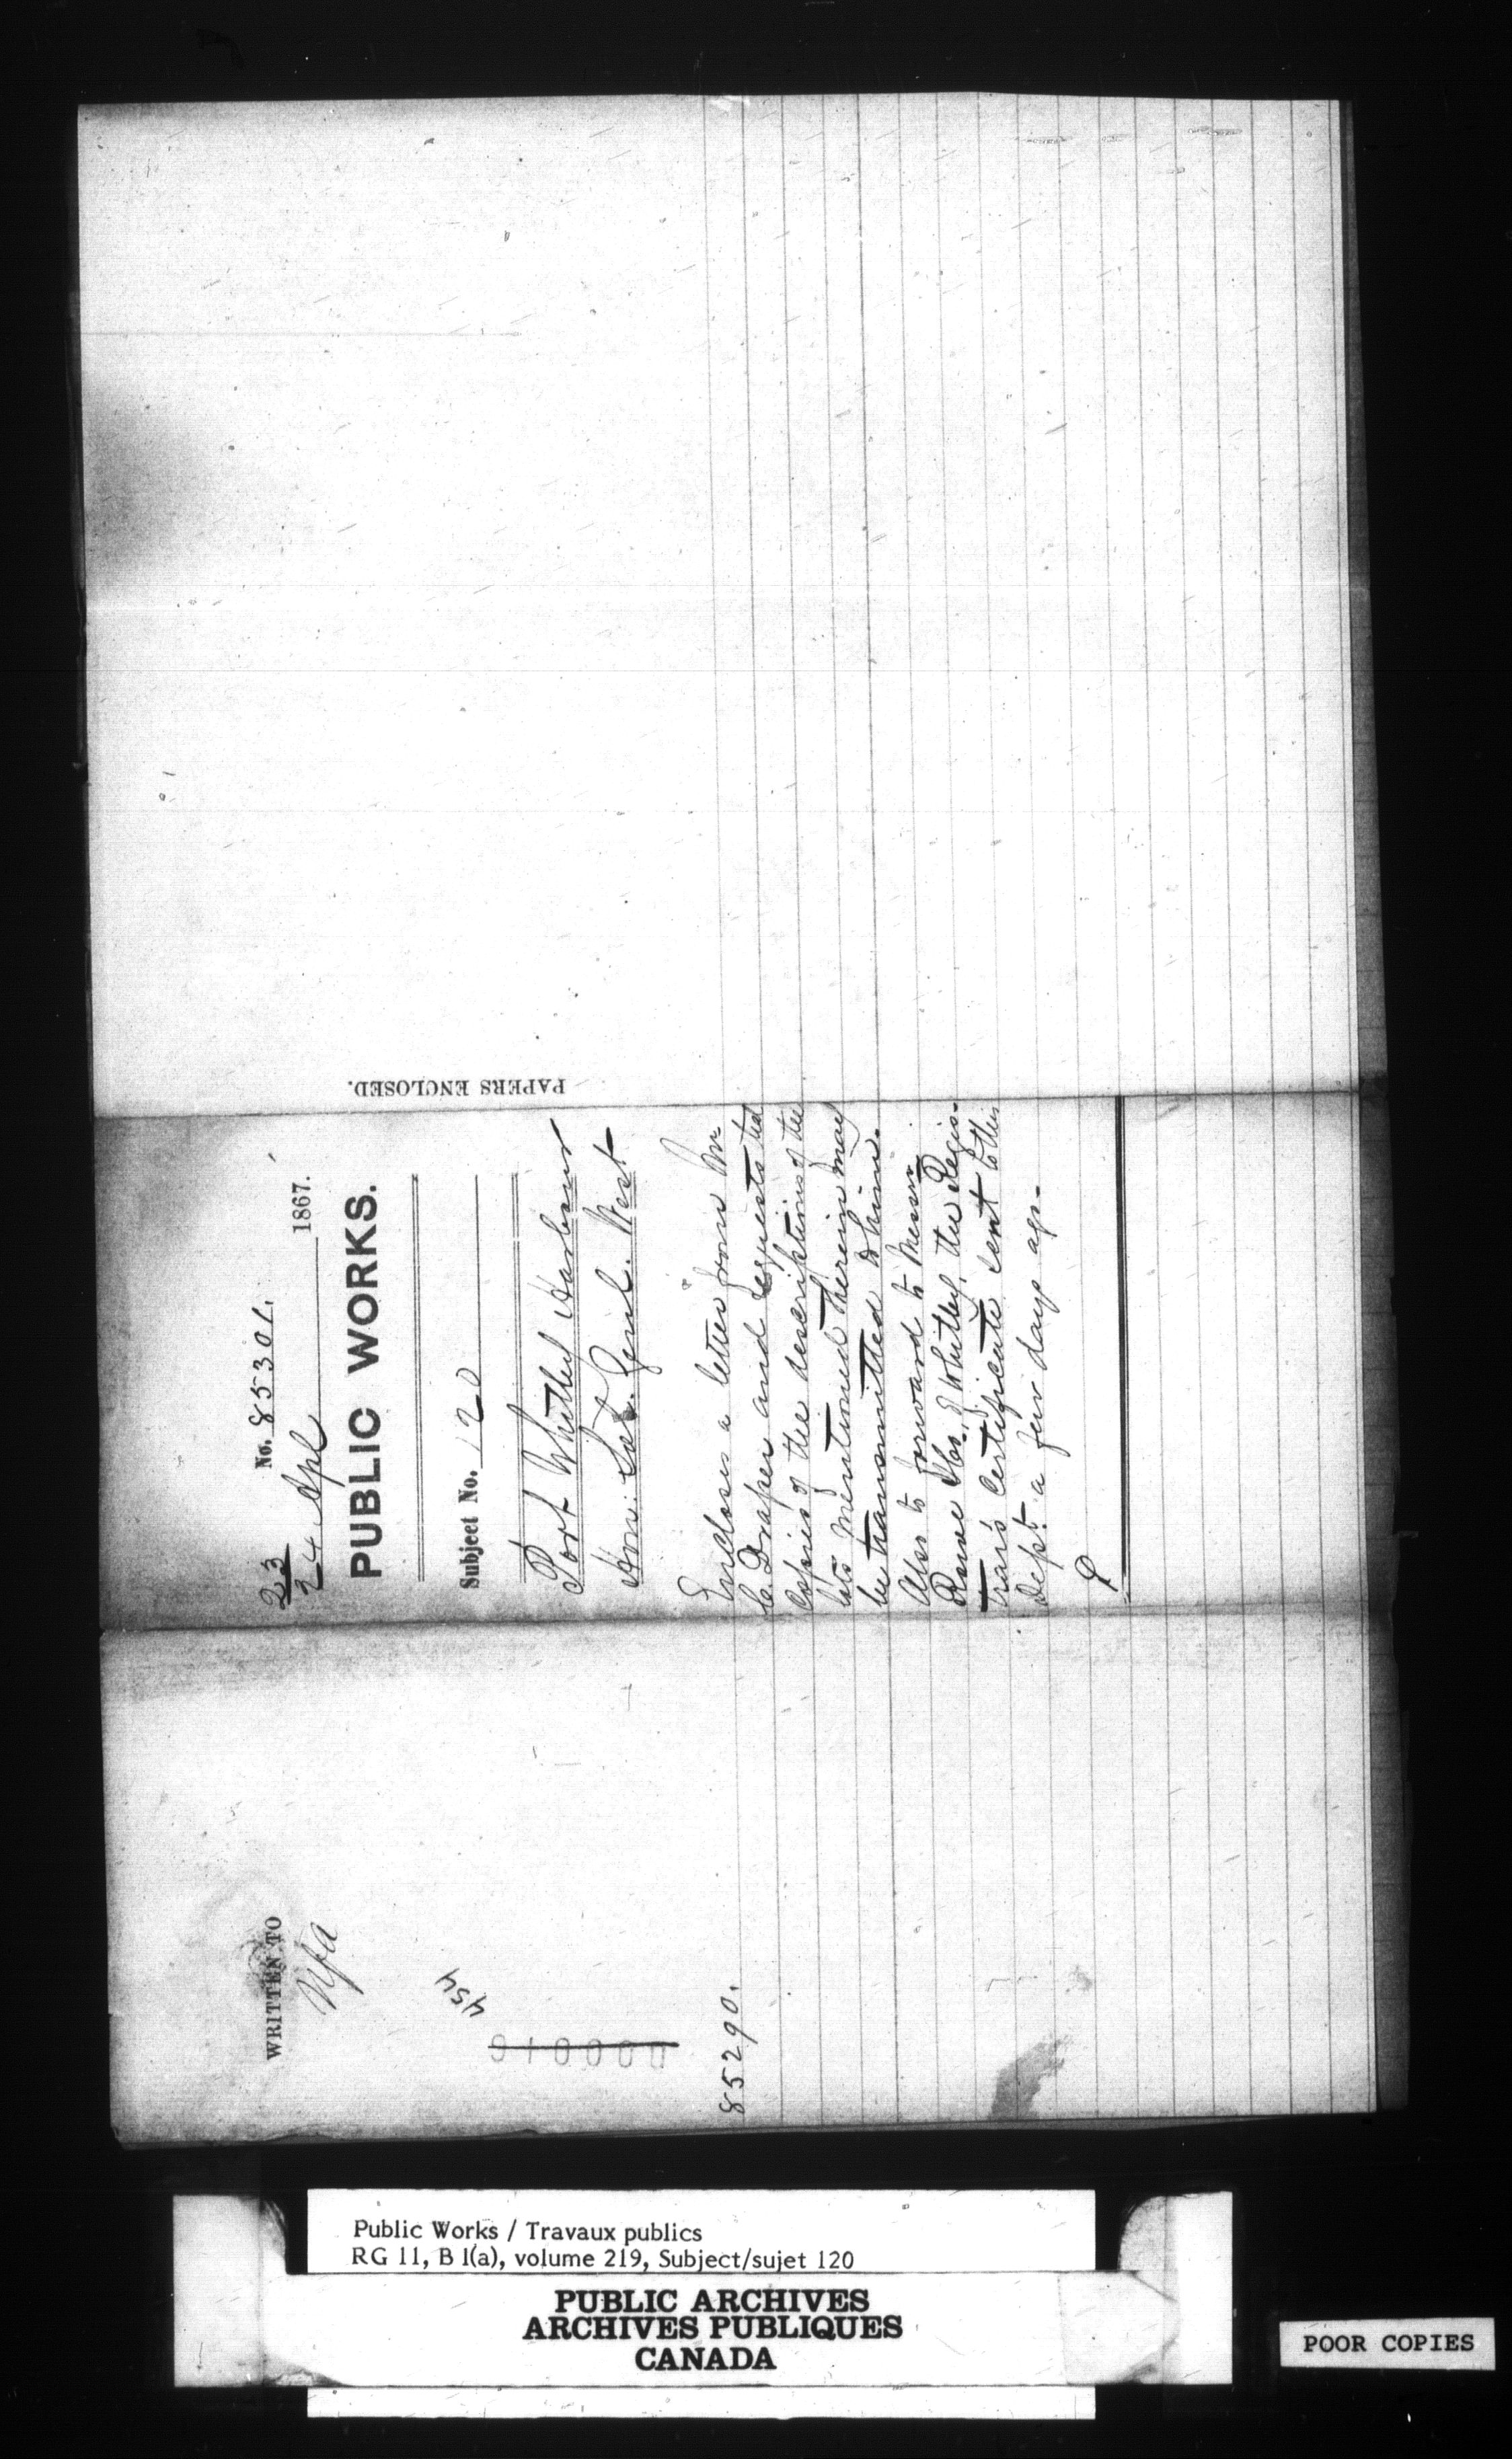 No. 85301.
23
24 Apl 1867.
PUBLIC WORKS.
Subject No. 120
Port Whitby Harbour
Hon: Sol. Genl. West
Encloses a letter from Mr.
C. Draper and requests that
Copies of the descriptions of the
lots mentioned therein may
be transmitted to him.
Also to forward to Messrs
Rowe of Whitby, the Regis-
trar's Certificate sent to this
Dept. a few days ago.
PAPERS ENCLOSED.
WRITTEN TO
Nfa
454
85290.
Public Works / Travaux publics
RG 11, B 1(a), volume 219, Subject/sujet 120
PUBLIC ARCHIVES
ARCHIVES PUBLIQUES
CANADA
POOR COPIES